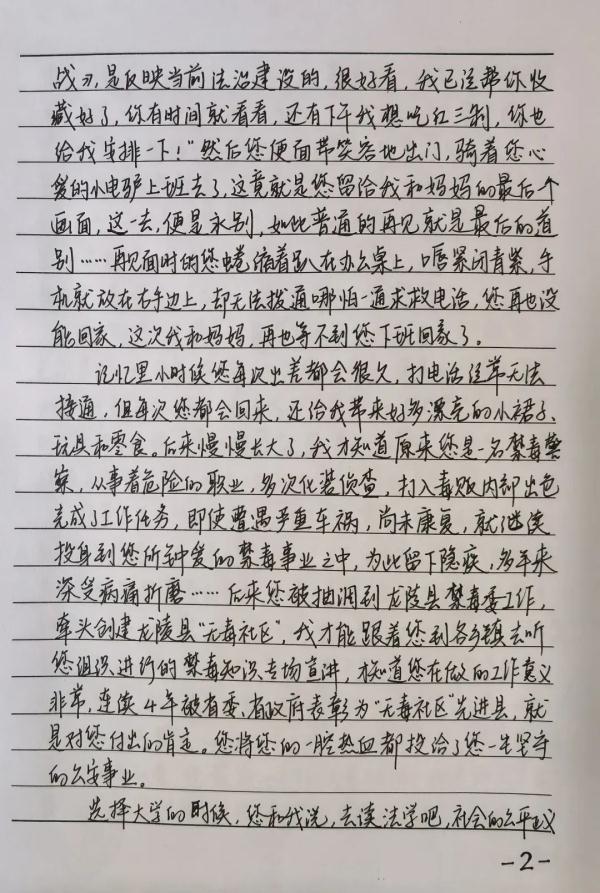 战刃,是反映当前法治建设的,很好看,我已经帮你收
藏好了,你有时间就看看,还有下午我想吃红三剁,你也
给我安排一下!”然后您便面带笑容地出门,骑着您心
爱的小电驴上班去了,这竟就是您留给我和妈妈的最后个
画面,这一去,便是永别,如此普通的再见就是最后的道
别……再见面时的您蜷缩着趴在办公桌上,唇紧闭青紫,手
机就放在右手边上,却无法拨通哪怕一通求救电话,您再也没
能回家,这次我和妈妈,再也等不到您下班回家了。
记忆里小时候您每次出差都会很久,打电话经常无法
接通,但每次您都会回来,还给我带来好多漂亮的小裙子、
玩具和零食。后来慢慢长大了,我才知道原来您是一名禁毒警
察,从事着危险的职业,多次化装侦查,打入毒贩内部出色
完成了工作任务,即使遭遇严重车祸,尚未康复,就继续
投身到您所钟爱的禁毒事业之中,为此留下隐疾,多年来
深受病痛折磨……后来您被抽调到龙陵县禁毒委工作,
牵头创建龙陵县“无毒社区”,我才能跟着您到各乡镇去听
您组织进行的禁毒知识专场宣讲,才知道您在做的工作意义
非常,连续4年被省委、省政府表彰为“无毒社区”先进县,就
是对您付出的肯定。您将您的一腔热血都投给了您一生坚守
的公安事业。
选择大学的时候,您和我说,去读法学吧,社会的公平正义
-2-